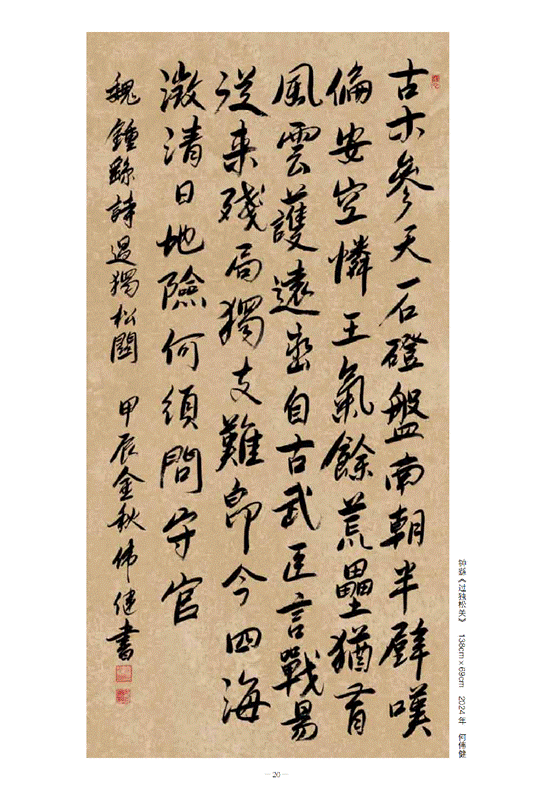 古木參天石磴盤南朝半壁嘆
偏安空憐王氣餘荒壘猶有
風雲護遠巒自古武臣言戰易
從来殘局獨支難即今四海
澂清日地險何須問守官
魏鍾繇詩過獨松關 甲辰金秋伟健書
钟繇《过独松关》 138cm×69cm 2024年 何伟健
— 20 —